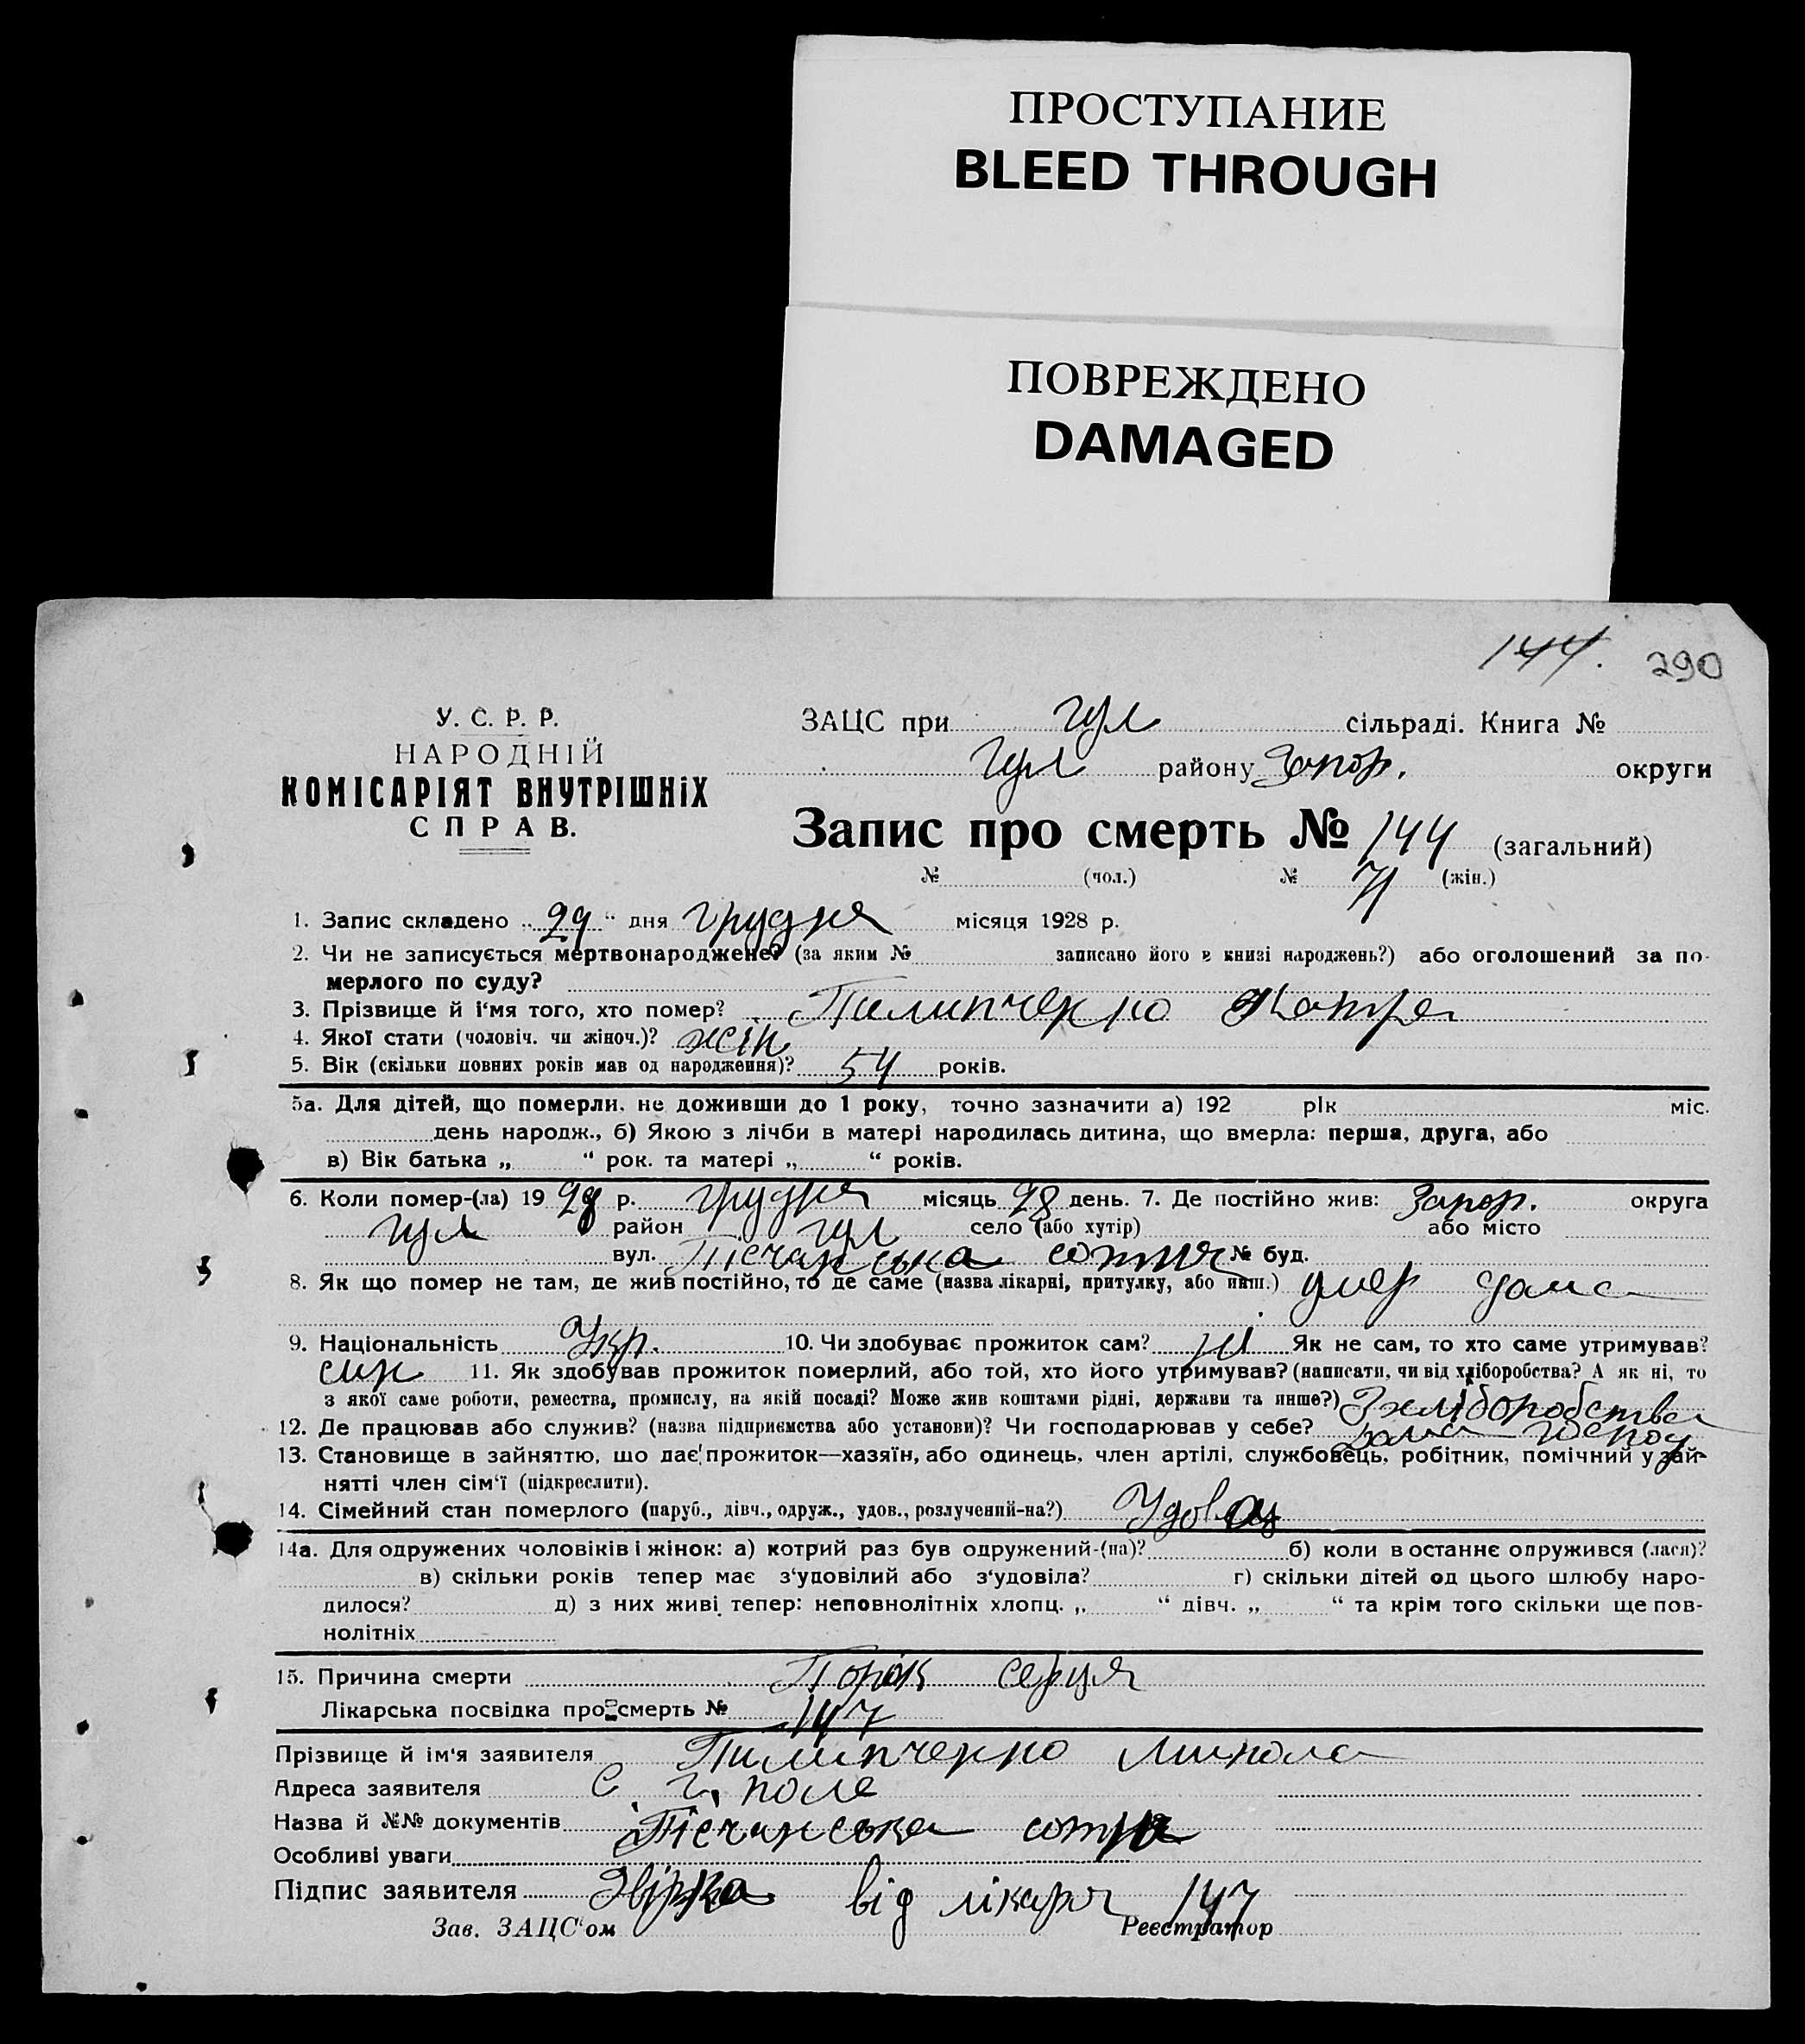 ПРОСТУПАНИЕ
BLEED THROUGH
ПОВРЕЖДЕНО
DAMAGED
144. 290
У. С. Р. Р.
НАРОДНІЙ
КОМІСАРІЯТ ВНУТРІШНіХ
СПРАВ.
ЗАЦС при гул сільраді. Книга №
гул району Запор. округи
Запис про смерть № 144 (загальний)
№ (чол.) № 71 (жін.)
1. Запис складено „29“ дня грудня місяця 1928 р.
2. Чи не записується мертвонароджене? (за яким № записано його в книзі народжень?) або оголошений за по-
мерлого по суду?
3. Прізвище й і‘мя того, хто помер? Пилипченко Катря
4. Якої стати (чоловіч. чи жіноч.)? жін
5. Вік (скільки повних років мав од народження)? 54 років.
5а. Для дітей, що померли, не доживши до 1 року, точно зазначити а) 192 рік міс.
день народж., б) Якою з лічби в матері народилась дитина, що вмерла: перша, друга, або
в) Вік батька „ “ рок. та матері „ “ років.
6. Коли помер-(ла) 1928 р. грудня місяць 28 день. 7. Де постійно жив: Запор. округа
гул район гул село (або хутір) або місто
вул. Пісчанська сотня № буд.
8. Як що помер не там, де жив постійно, то де саме (назва лікарні, притулку, або инш.) умер дома
9. Національність Укр. 10. Чи здобуває прожиток сам? ні Як не сам, то хто саме утримував?
син 11. Як здобував прожиток померлий, або той, хто його утримував? (написати, чи від хліборобства? А як ні, то
з якої саме роботи, ремества, промислу, на якій посаді? Може жив коштами рідні, держави та инше?) З хліборобства
12. Де працював або служив? (назва підприємства або установи)? Чи господарював у себе? дома госпоу
13. Становище в зайняттю, що дає прожиток—хазяїн, або одинець, член артілі, службовець, робітник, помічний у зай-
нятті член сім‘ї (підкреслити).
14. Сімейний стан померлого (паруб., дівч., одруж., удов., розлучений-на?)
14а. Для одружених чоловіків і жінок: а) котрий раз був одружений-(на)? б) коли востаннє одружився (лася)?
в) скільки років тепер має з‘удовілий або з‘удовіла? г) скільки дітей од цього шлюбу наро-
дилося? д) з них живі тепер: неповнолітніх хлопц. „ “ дівч. „ “ та крім того скільки ще пов-
нолітніх
15. Причина смерти Порок серця
Лікарська посвідка про смерть № 147
Прізвище й ім‘я заявителя Пилипченко Микола
Адреса заявителя С. г. поле
Назва й №№ документів Пісчанська сотня
Особливі уваги
Підпис заявителя від лікаря 147
Зав. ЗАЦС‘ом Реєстратор